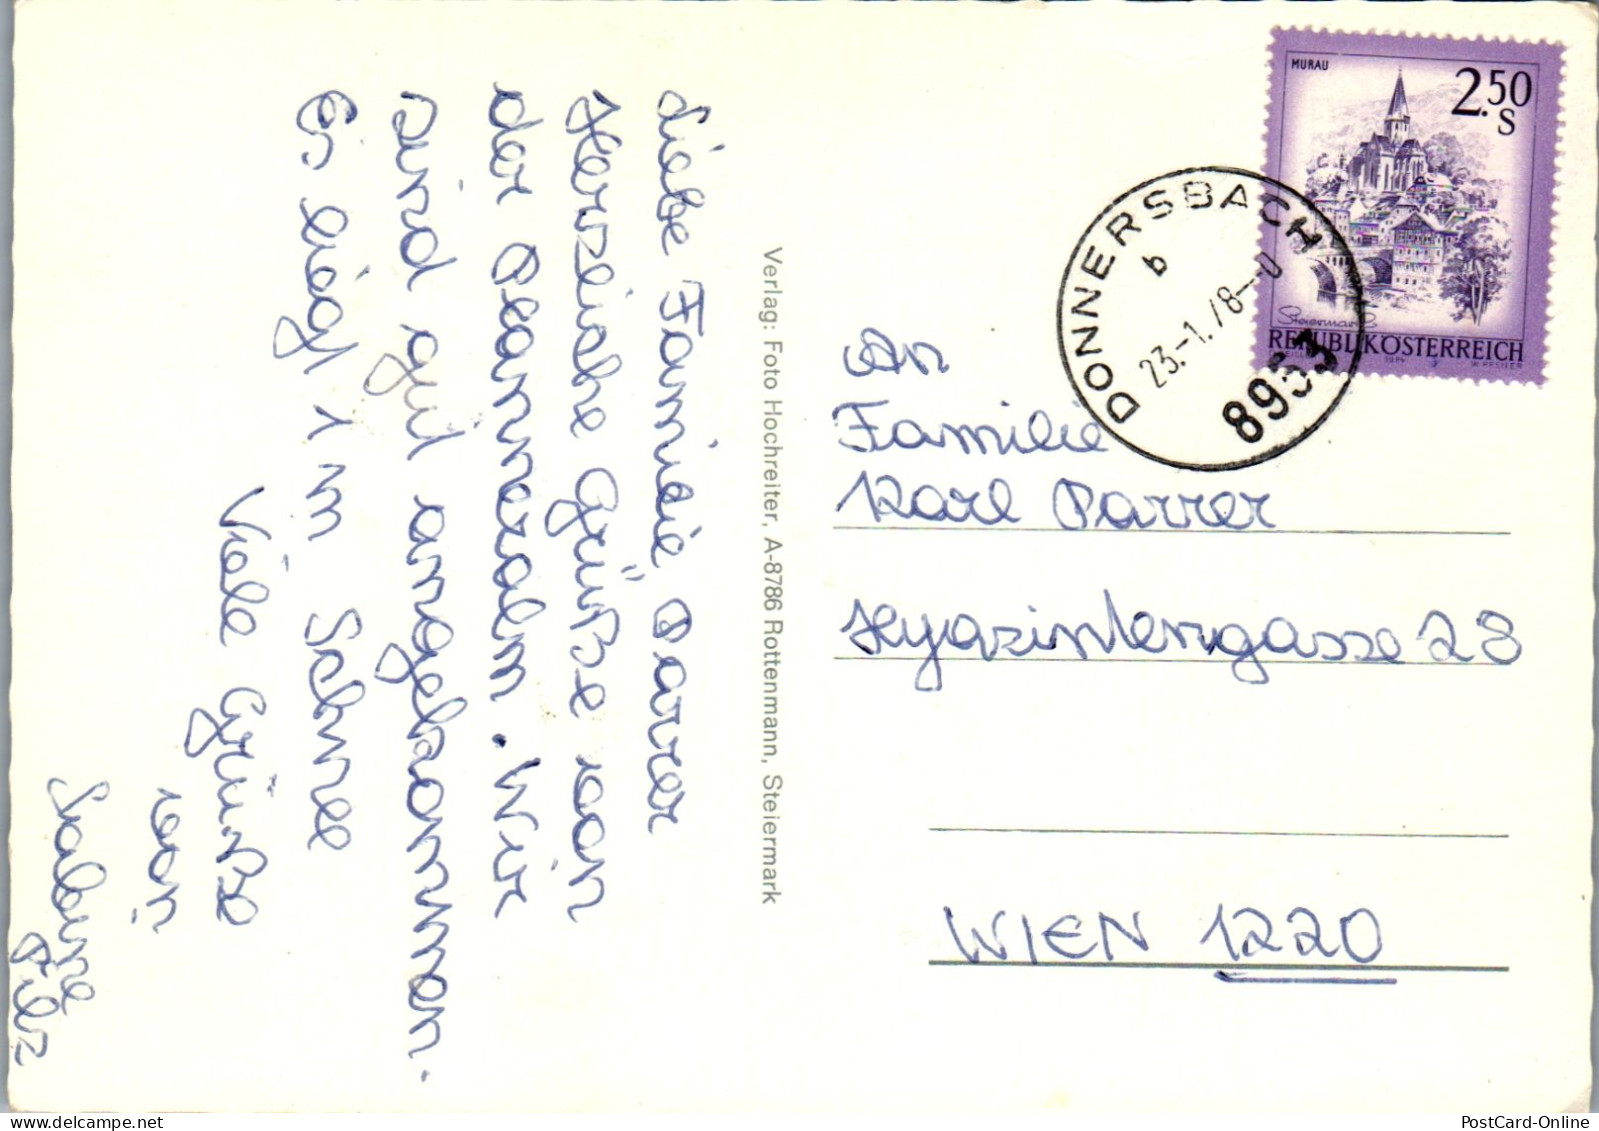 Liebe Familie Parrer
Herzliche Grüße von
der Planneralm. Wir
sind gut angekommen.
Es liegt 1 m Schnee
Viele Grüße
von
Sabine
Pilz
Verlag: Foto Hochreiter, A-8786 Rottenmann, Steiermark
MURAU
2.50
S
Steiermark
REPUBLIK ÖSTERREICH
DONNERSBACH
b
23.-1.78-
8953
An
Familie
Karl Parrer
Hyazintengasse 28
WIEN 1220
PostCard-Online